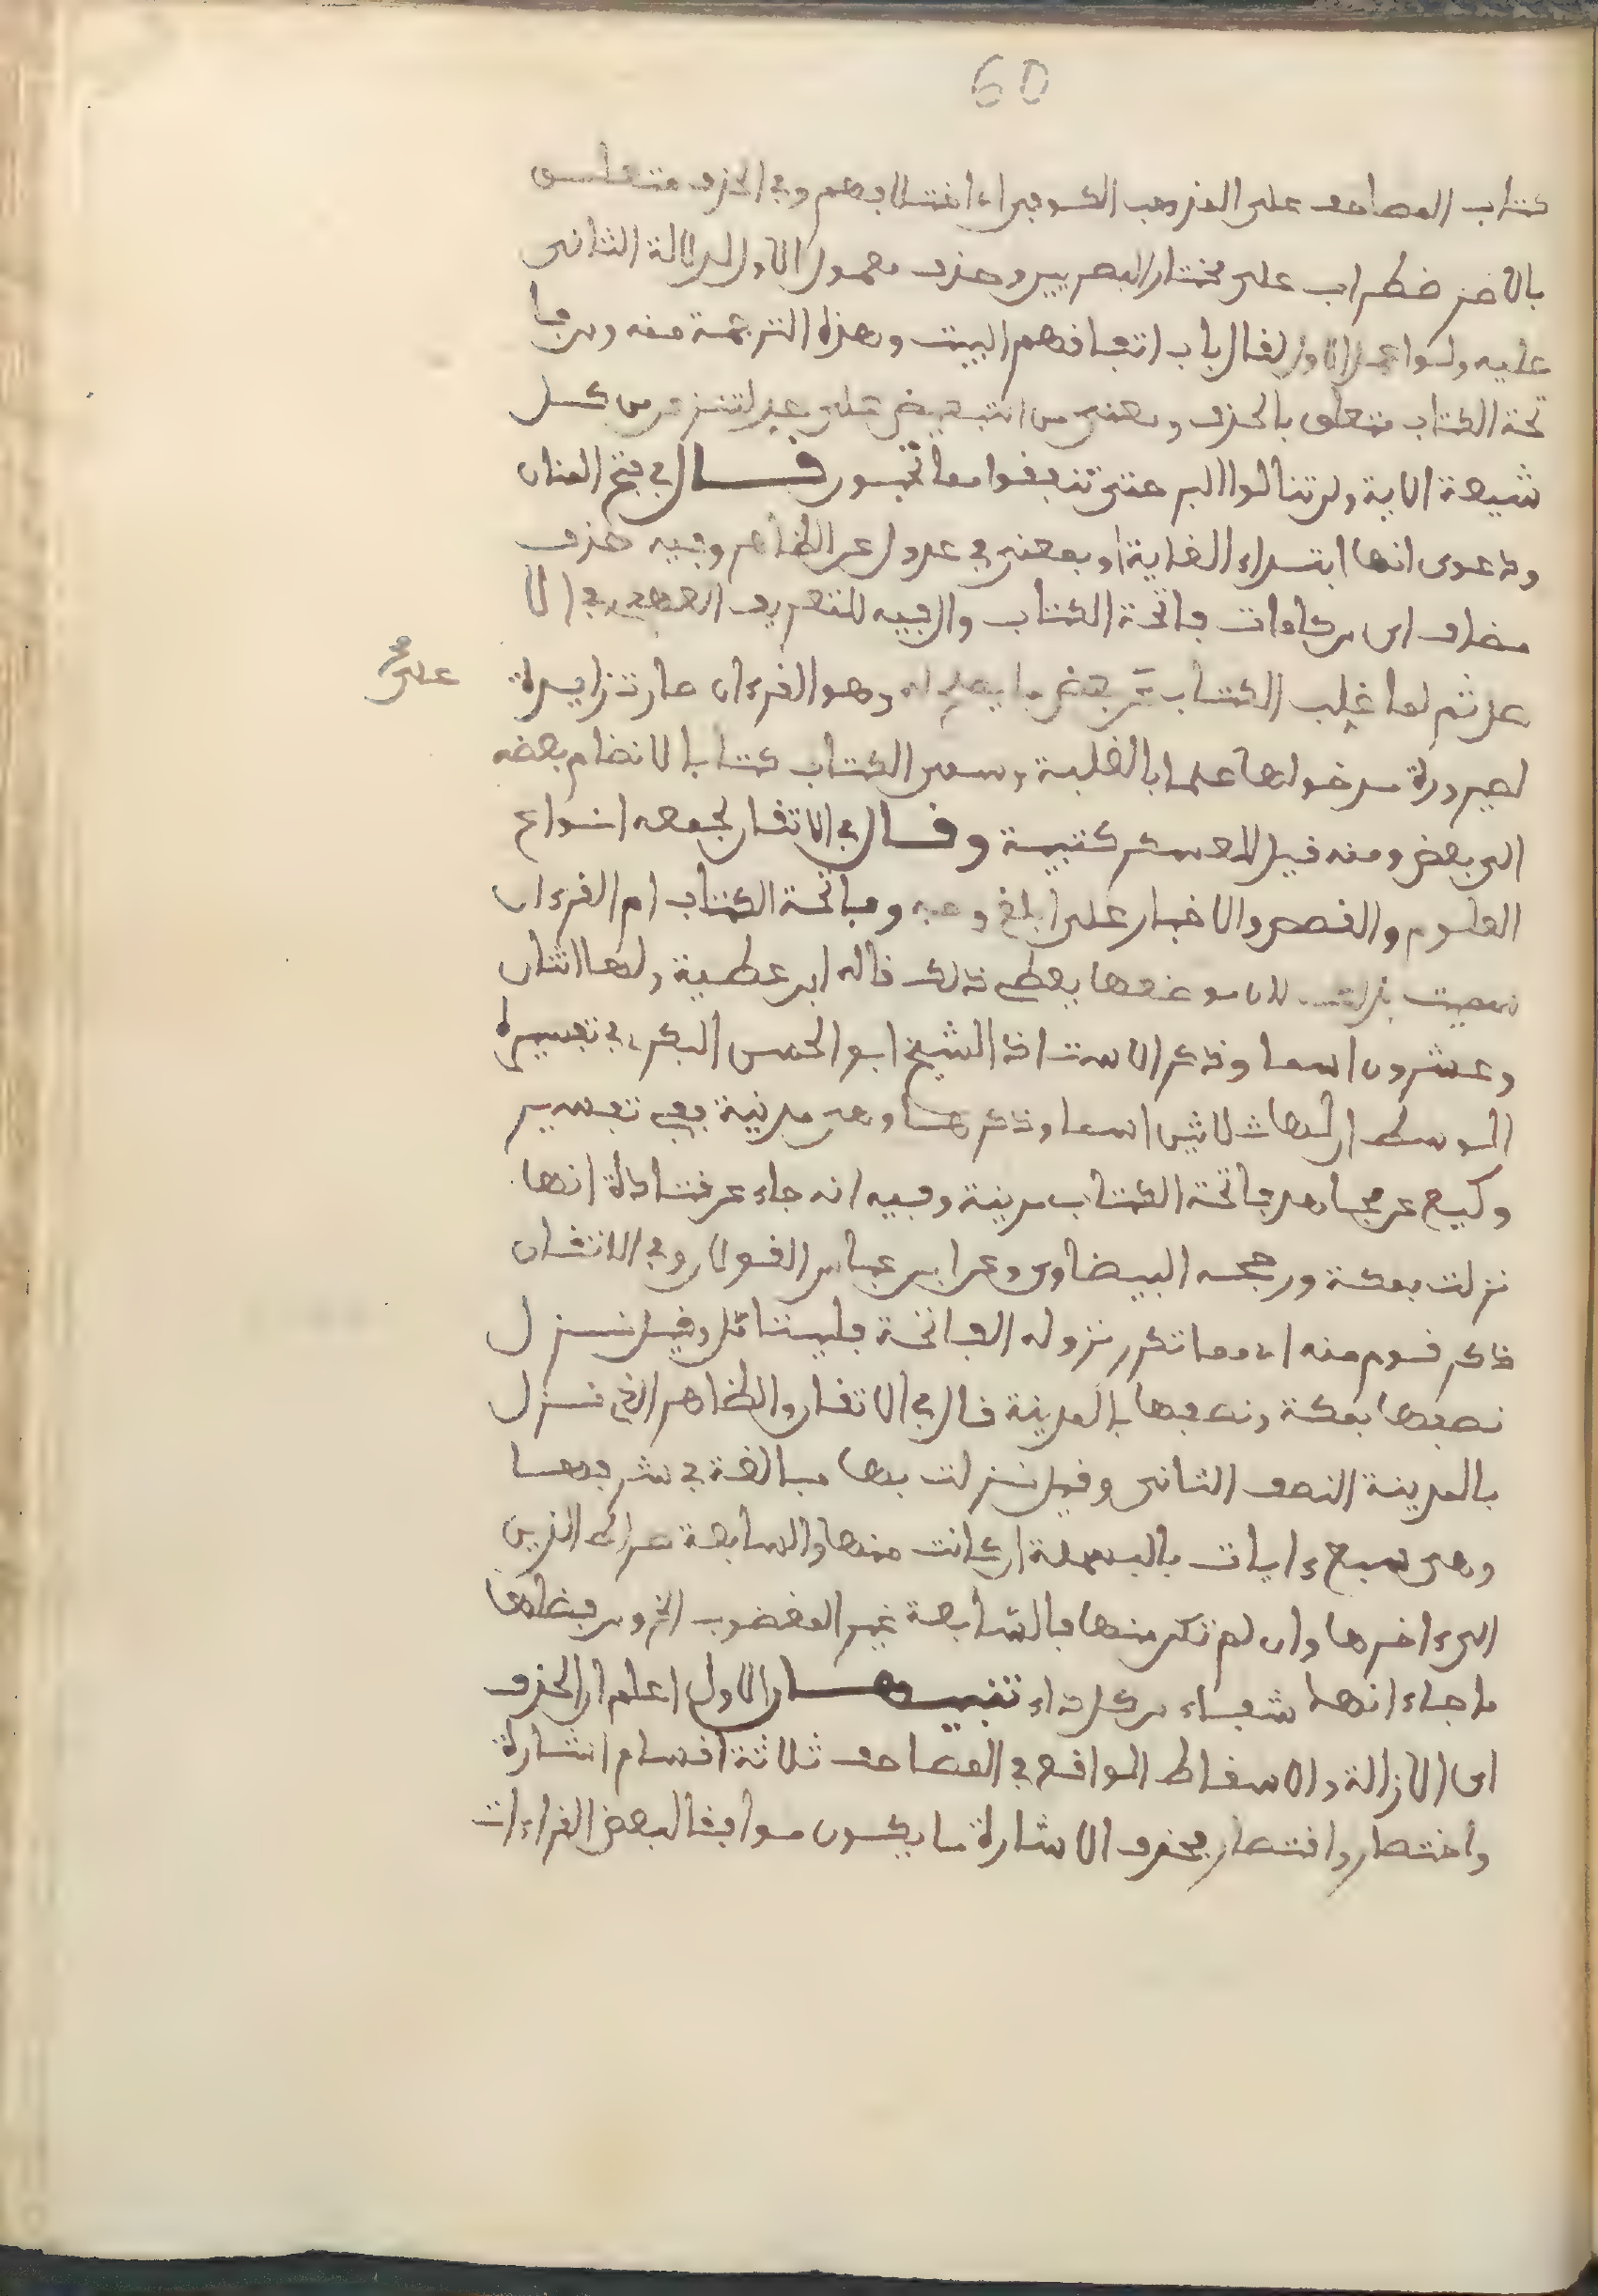 60
كتاب المصاحف على المذهب الكوفي اء اختلافهم وفي الحذف متعلق
بالاضطراب على مختار البصريين وحذف معمول الاول لدلالة الثاني
عليه ولو اعمل الاول لقال باب اتفاقهم البيت وهذه الترجمة منه ومن فا
تحة الكتاب متعلق بالحذف ومعنى من التبعيض على حد لننزعن من كل
شيعة الاية ولن تنالوا البر حتى تنفقوا مما تحبون قال في فتح المنان
ودعوى انها ابتداء الغاية او بمعنى في عدول عن الظاهر وفيه حذف
مضاف اى من كلمات فاتحة الكتاب وال فيه للتعريف العهدي في الا
صل ثم لما غلب الكتاب على بعض ما يصلح له وهو القرءان صارت زايدة
على صح
لصيرورة مدخولها علما بالغلبة وسمى الكتاب كتابا لانضام بعضه
الى بعض ومنه قيل للعسكر كتيبة وقال في الاتقان لجمعه انواع
العلوم والقصص والاخبار على ابلغ وجه وفاتحة الكتاب ام القرءان
سميت بذلك لان موضعها يعطى ذلك قاله ابن عطية ولها اثنان
وعشرون اسما وذكر الاستاذ الشيخ ابو الحسن البكرى في تفسيره
الوسط ان لها ثلاثين اسما وذكرها وهى مدنية ففي تفسير
وكيع عن مجاهد فاتحة الكتاب مدينة وفيه انه جاء عن قتادة انها
نزلت بمكة ورجحه البيضاوى وعن ابن عباس القولان وفي الاتقان
ذكر قوم منه اء مما تكرر نزوله الفاتحة فليتامل وقيل نزل
نصفها بمكة ونصفها بالمدينة قال في الاتقان والظاهر الذي نزل
بالمدينة النصف الثاني وقيل نزلت بها مبالغة في شرفها
وهى سبع ءايات بالبسملة ان كانت منها والسابعة صراط الذين
الى ءاخرها وان لم تكن منها فالسابعة غير المغضوب الخ ومن فضلها
ما جاء انها شفاء من كل داء تنبيهان الاول اعلم ان الحذف
اى الازالة والاسقاط الواقع في المصاحف ثلاثة اقسام اشارة
واختصار واقتصار فحذف الاشارة ما يكون موافقا لبعض القراءات